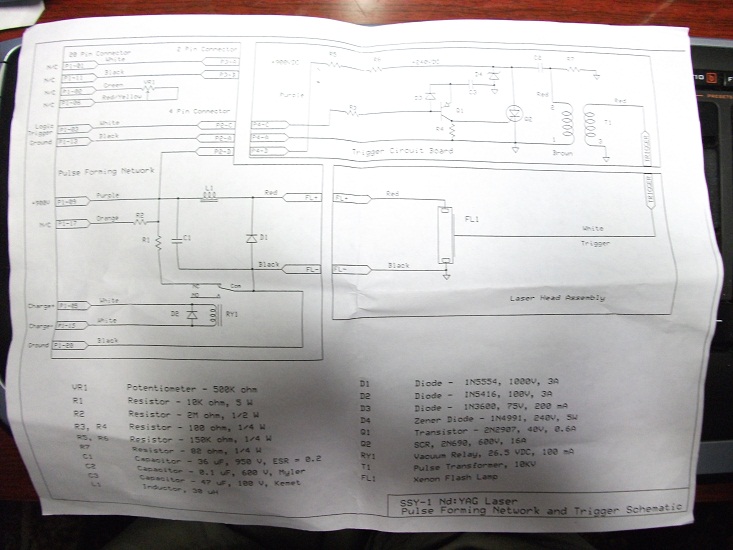 20 Pin Connector
2 Pin Connector
N/C P1-01 White P3-A
N/C P1-11 Black P3-B
N/C P1-02 Green VR1
N/C P1-06 Red/Yellow
4 Pin Connector
Logic Trigger P1-03 White P2-C
Ground P1-13 Black P2-A
P2-D
+900VDC
R5
R6
+240VDC
C3
R7
Purple
D3
D4
C2
R3
Q1
R4
Q2
Red
2
1
Brown
T1
Red
TRIGGER
P4-C
P4-A
P4-D
Trigger Circuit Board
Pulse Forming Network
+900V P1-09 Purple
L1
Red FL+
N/C P1-17 Orange R2
R1
C1
D1
Black FL-
NC
NO
Com
Charge+ P1-05 White
D2
RY1
Charge- P1-15 White
Ground P1-20 Black
FL+ Red
FL1
White
Trigger
TRIGGER
FL- Black
Laser Head Assembly
VR1 Potentiometer - 500K ohm
R1 Resistor - 10K ohm, 5 W
R2 Resistor - 2M ohm, 1/2 W
R3, R4 Resistor - 100 ohm, 1/4 W
R5, R6 Resistor - 150K ohm, 1/4 W
R7 Resistor - 80 ohm, 1/4 W
C1 Capacitor - 36 uF, 950 V, ESR = 0.2
C2 Capacitor - 0.1 uF, 600 V, Mylar
C3 Capacitor - 47 uF, 100 V, Kemet
L1 Inductor, 30 uH
D1 Diode - 1N5554, 1000V, 3A
D2 Diode - 1N5416, 100V, 3A
D3 Diode - 1N3600, 75V, 200 mA
D4 Zener Diode - 1N4991, 240V, 5W
Q1 Transistor - 2N2907, 40V, 0.6A
Q2 SCR, 2N690, 600V, 16A
RY1 Vacuum Relay, 26.5 VDC, 100 mA
T1 Pulse Transformer, 10KV
FL1 Xenon Flash Lamp
SSY-1 Nd:YAG Laser
Pulse Forming Network and Trigger Schematic